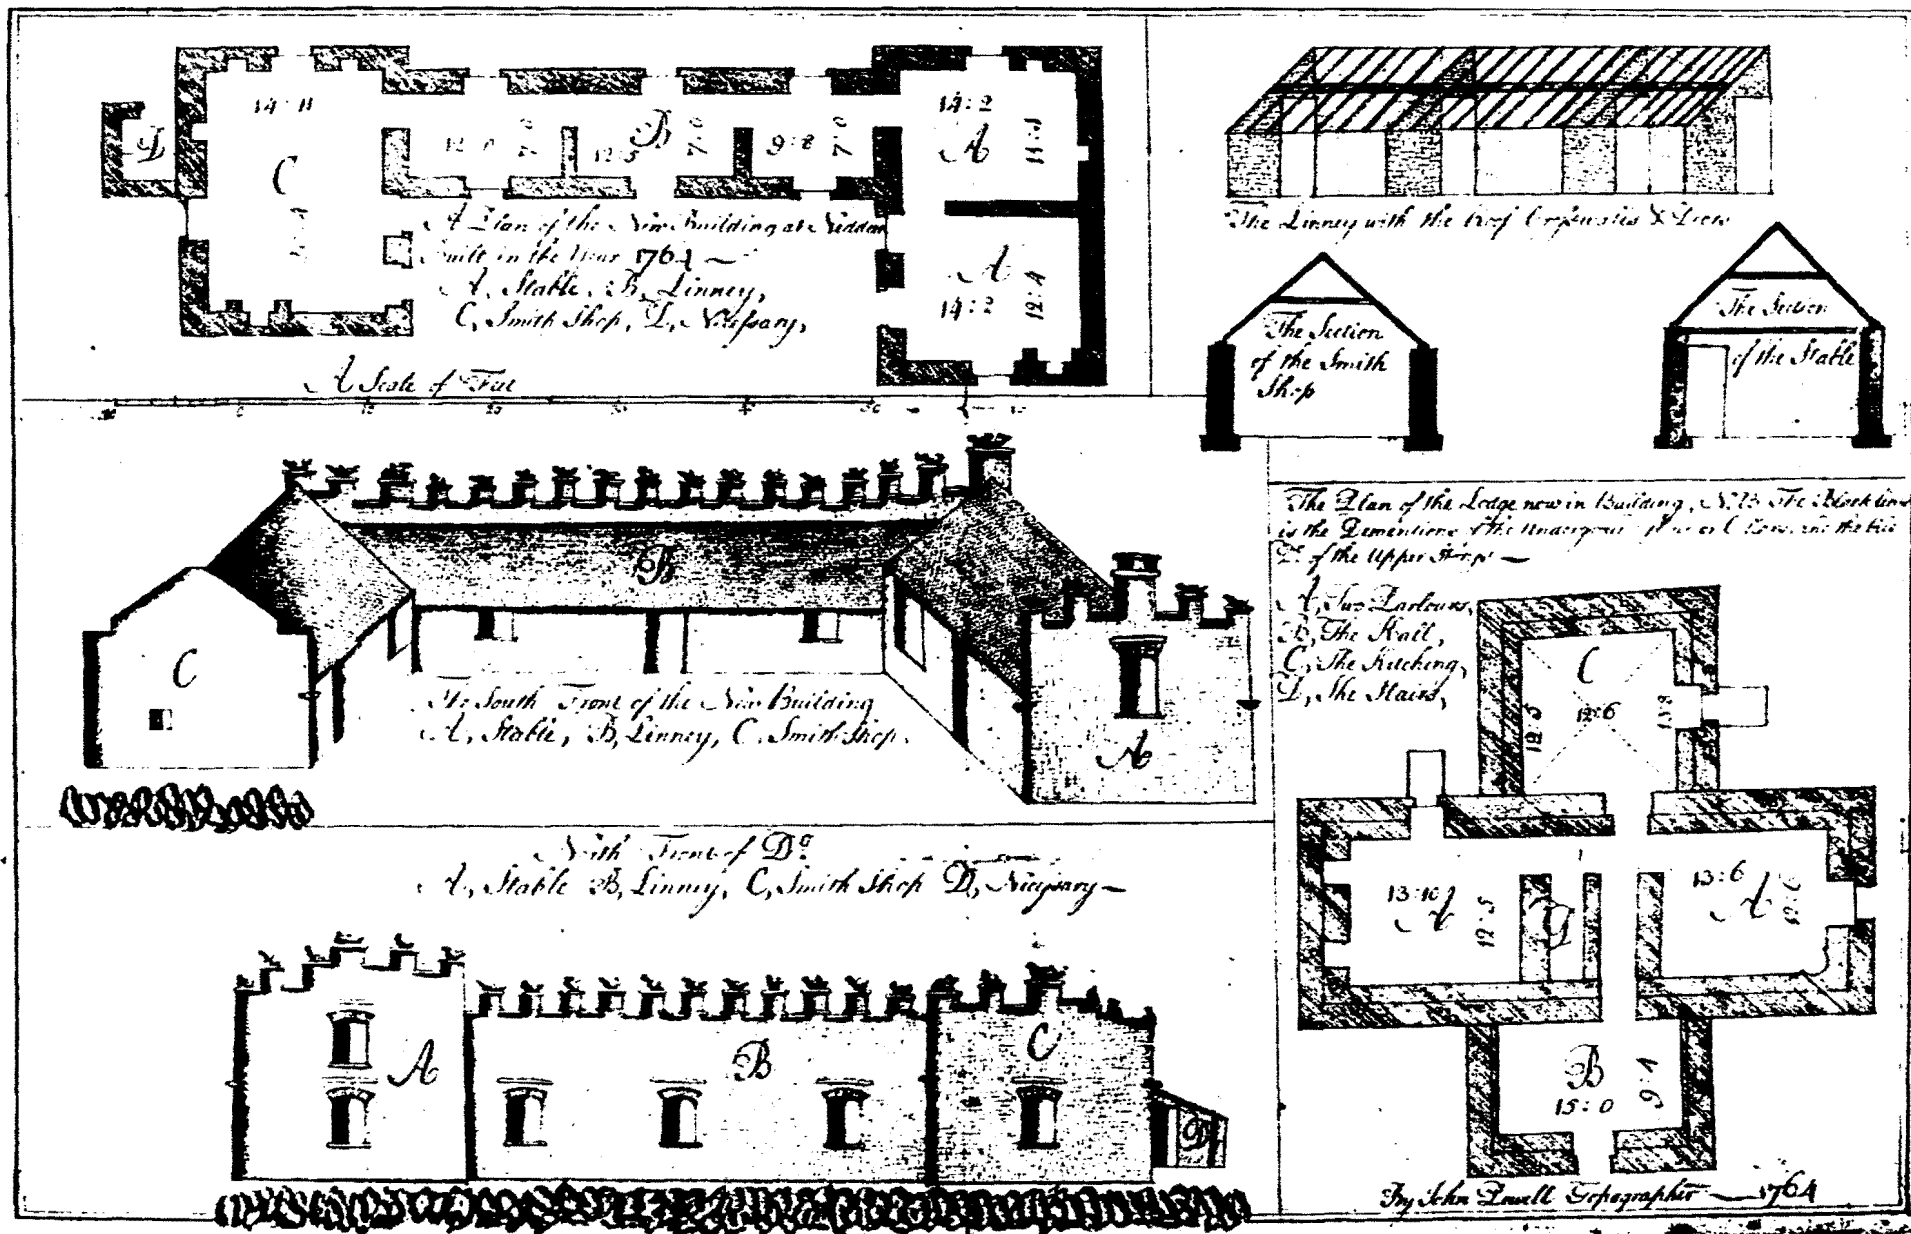 14:11
C
D
12:0
7:0
12:5
B
7:0
9:8
7:0
14:2
A
11:4
A
14:2
12:4
A Plan of the New Building at
Built in the Year 1764
A, Stable, B, Linney,
C, Smith Shop, D, Necessary,
A Scale of Feet
10 0 10 20 30 40 50
The Linney with the Roof
The Section
of the Smith
Shop
The Section
of the Stable
B
C
A
The South Front of the New Building
A, Stable, B, Linney, C, Smith Shop.
North Front of Do.
A, Stable B, Linney, C, Smith Shop D, Necessary
A
B
C
D
The Plan of the Lodge now in Building, N.B. The Black line
is the Dementions of the
Do. of the Upper
A, Two Parlours,
B, The Hall,
C, The Kitching,
D, The Stairs,
C
12:5
12:6
13:10
A
12:5
D
13:6
A
12:6
B
15:0
9:4
By John Powell Topographer 1764